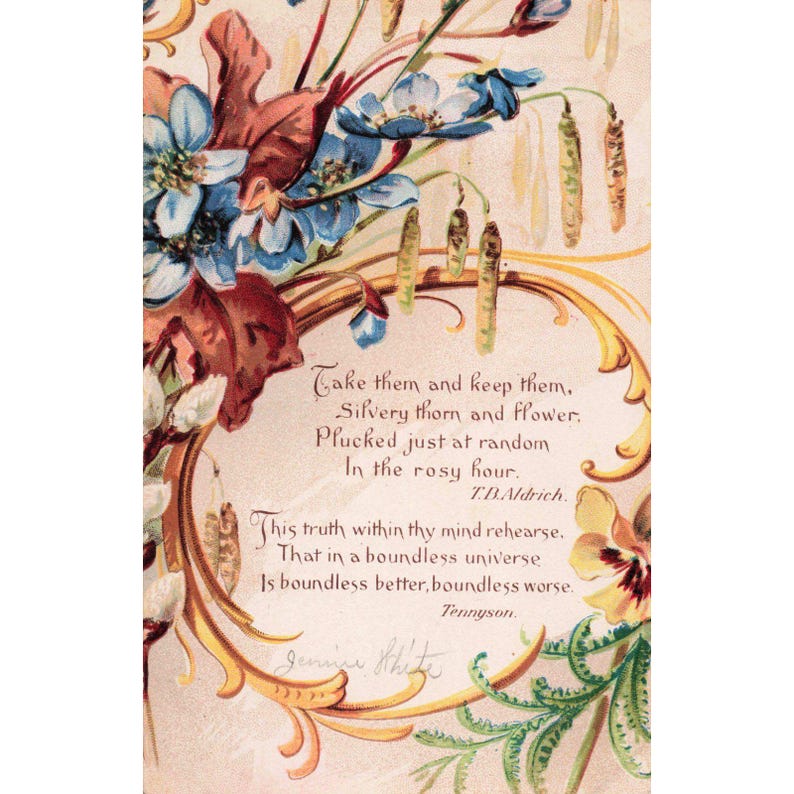 Take them and keep them,
Silvery thorn and flower,
Plucked just at random
In the rosy hour.
T.B. Aldrich.
This truth within thy mind rehearse,
That in a boundless universe
Is boundless better, boundless worse.
Tennyson.
Jennie White